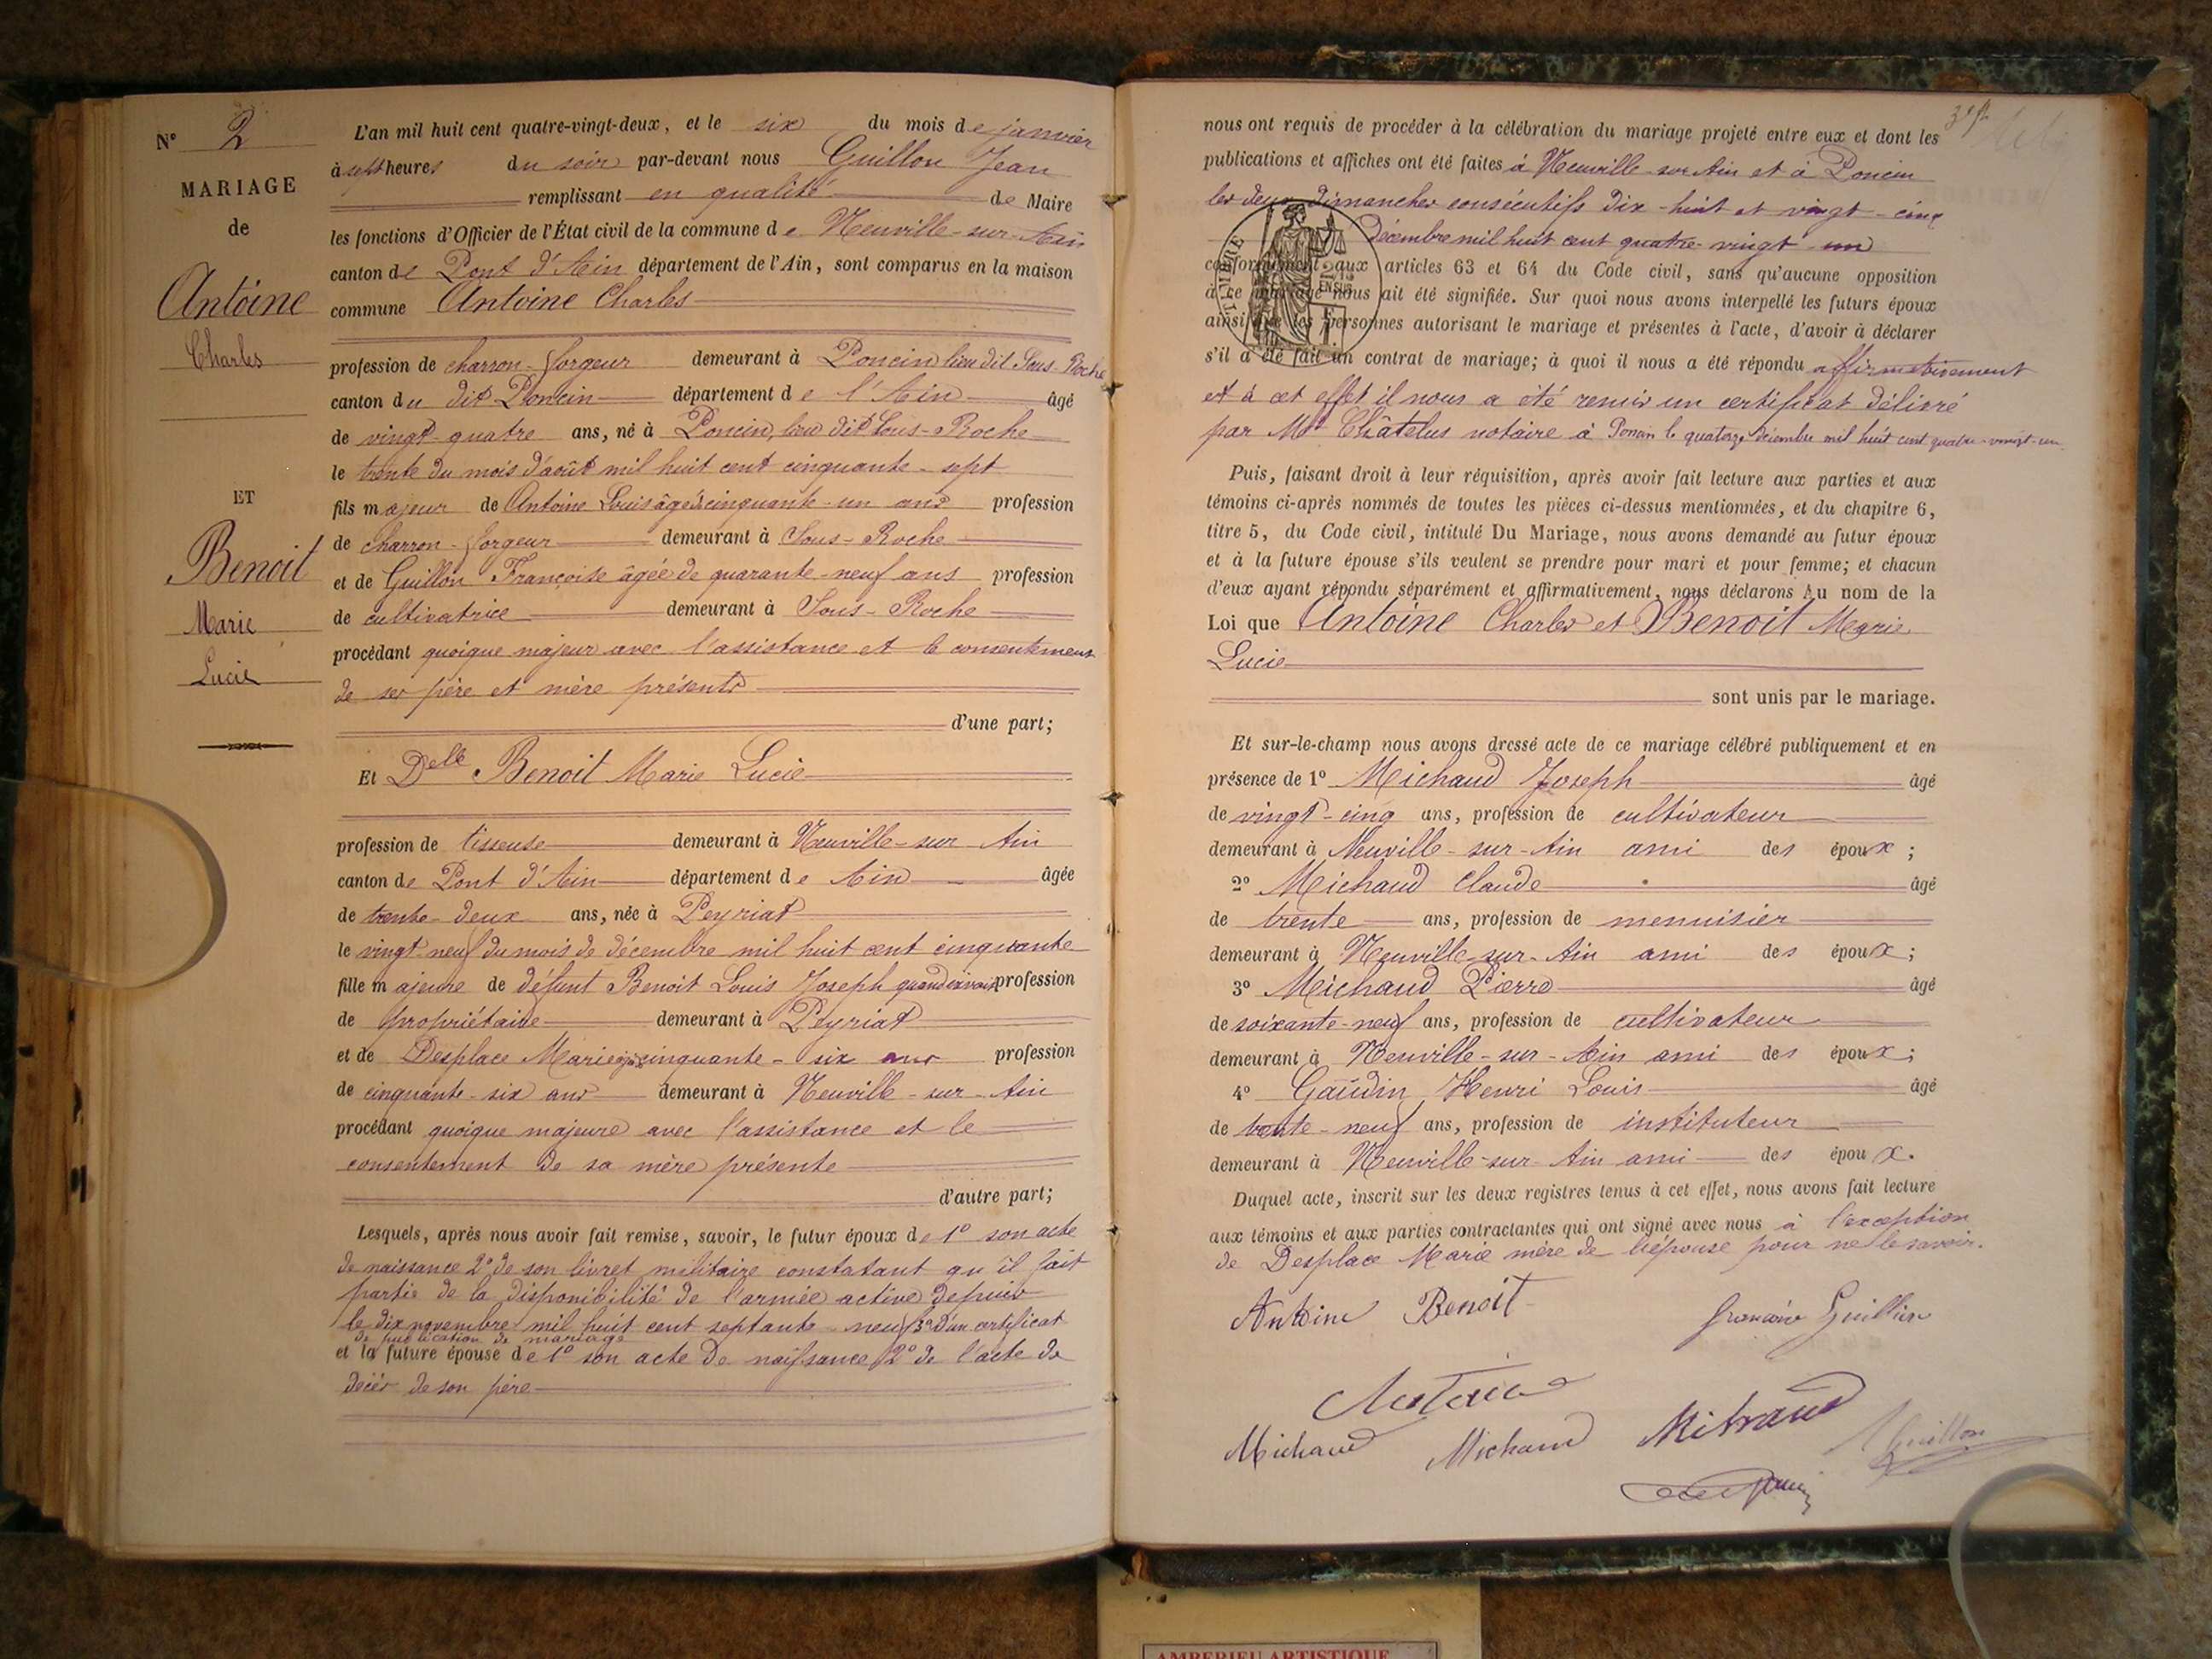 N° 2
MARIAGE
de
Antoine
Charles
ET
Benoit
Marie
Lucie
L'an mil huit cent quatre-vingt-deux, et le six du mois de janvier
à sept heures du soir par-devant nous Guillon Jean
remplissant en qualité de Maire
les fonctions d'Officier de l'État civil de la commune de Neuville-sur-Ain
canton de Pont d'Ain département de l'Ain, sont comparus en la maison
commune Antoine Charles
profession de charron-forgeur demeurant à Poncin lieu dit Sous-Roche
canton du dit Poncin département de l'Ain âgé
de vingt-quatre ans, né à Poncin, lieu dit Sous-Roche
le trente du mois d'août mil huit cent cinquante-sept
fils majeur de Antoine Louis âgé de cinquante-un ans profession
de charron-forgeur demeurant à Sous-Roche
et de Guillon Françoise âgée de quarante-neuf ans profession
de cultivatrice demeurant à Sous-Roche
procédant quoique majeur avec l'assistance et le consentement
de ses père et mère présents
d'une part;
Et Delle Benoit Marie Lucie
profession de tisseuse demeurant à Neuville-sur-Ain
canton de Pont d'Ain département de Ain âgée
de trente-deux ans, née à Peyriat
le vingt neuf du mois de décembre mil huit cent cinquante
fille majeure de défunt Benoit Louis Joseph quand vivait profession
de propriétaire demeurant à Peyriat
et de Desplace Marie âgée de cinquante-six ans profession
de cinquante-six ans demeurant à Neuville-sur-Ain
procédant quoique majeure avec l'assistance et le
consentement de sa mère présente
d'autre part;
Lesquels, après nous avoir fait remise, savoir, le futur époux de 1° son acte
de naissance 2° de son livret militaire constatant qu'il fait
partie de la disponibilité de l'armée active depuis
le dix novembre mil huit cent septante-neuf 3° d'un certificat
de publication de mariage
et la future épouse de 1° son acte de naissance 2° de l'acte de
décès de son père
nous ont requis de procéder à la célébration du mariage projeté entre eux et dont les
publications et affiches ont été faites à Neuville-sur-Ain et à Poncin
les deux dimanches consécutifs dix-huit et vingt-cinq
décembre mil huit cent quatre-vingt-un
conformément aux articles 63 et 64 du Code civil, sans qu'aucune opposition
à ce mariage nous ait été signifiée. Sur quoi nous avons interpellé les futurs époux
ainsi que les personnes autorisant le mariage et présentes à l'acte, d'avoir à déclarer
s'il a été fait un contrat de mariage; à quoi il nous a été répondu affirmativement
et à cet effet il nous a été remis un certificat délivré
par Me Châtelus notaire à Poncin le quatorze décembre mil huit cent quatre-vingt-un.
Puis, faisant droit à leur réquisition, après avoir fait lecture aux parties et aux
témoins ci-après nommés de toutes les pièces ci-dessus mentionnées, et du chapitre 6,
titre 5, du Code civil, intitulé Du Mariage, nous avons demandé au futur époux
et à la future épouse s'ils veulent se prendre pour mari et pour femme; et chacun
d'eux ayant répondu séparément et affirmativement, nous déclarons Au nom de la
Loi que Antoine Charles et Benoit Marie
Lucie
sont unis par le mariage.
Et sur-le-champ nous avons dressé acte de ce mariage célébré publiquement et en
présence de 1° Michaud Joseph âgé
de vingt-cinq ans, profession de cultivateur
demeurant à Neuville-sur-Ain ami des époux;
2° Michaud Claude âgé
de trente ans, profession de menuisier
demeurant à Neuville-sur-Ain ami des époux;
3° Michaud Pierre âgé
de soixante-neuf ans, profession de cultivateur
demeurant à Neuville-sur-Ain ami des époux;
4° Gaudin Henri Louis âgé
de trente-neuf ans, profession de instituteur
demeurant à Neuville-sur-Ain ami des époux.
Duquel acte, inscrit sur les deux registres tenus à cet effet, nous avons fait lecture
aux témoins et aux parties contractantes qui ont signé avec nous à l'exception
de Desplace Marie mère de l'épouse pour ne le savoir.
Antoine Benoit
Michaud Michaud Guillon
AMBERIEU ARTISTIQUE